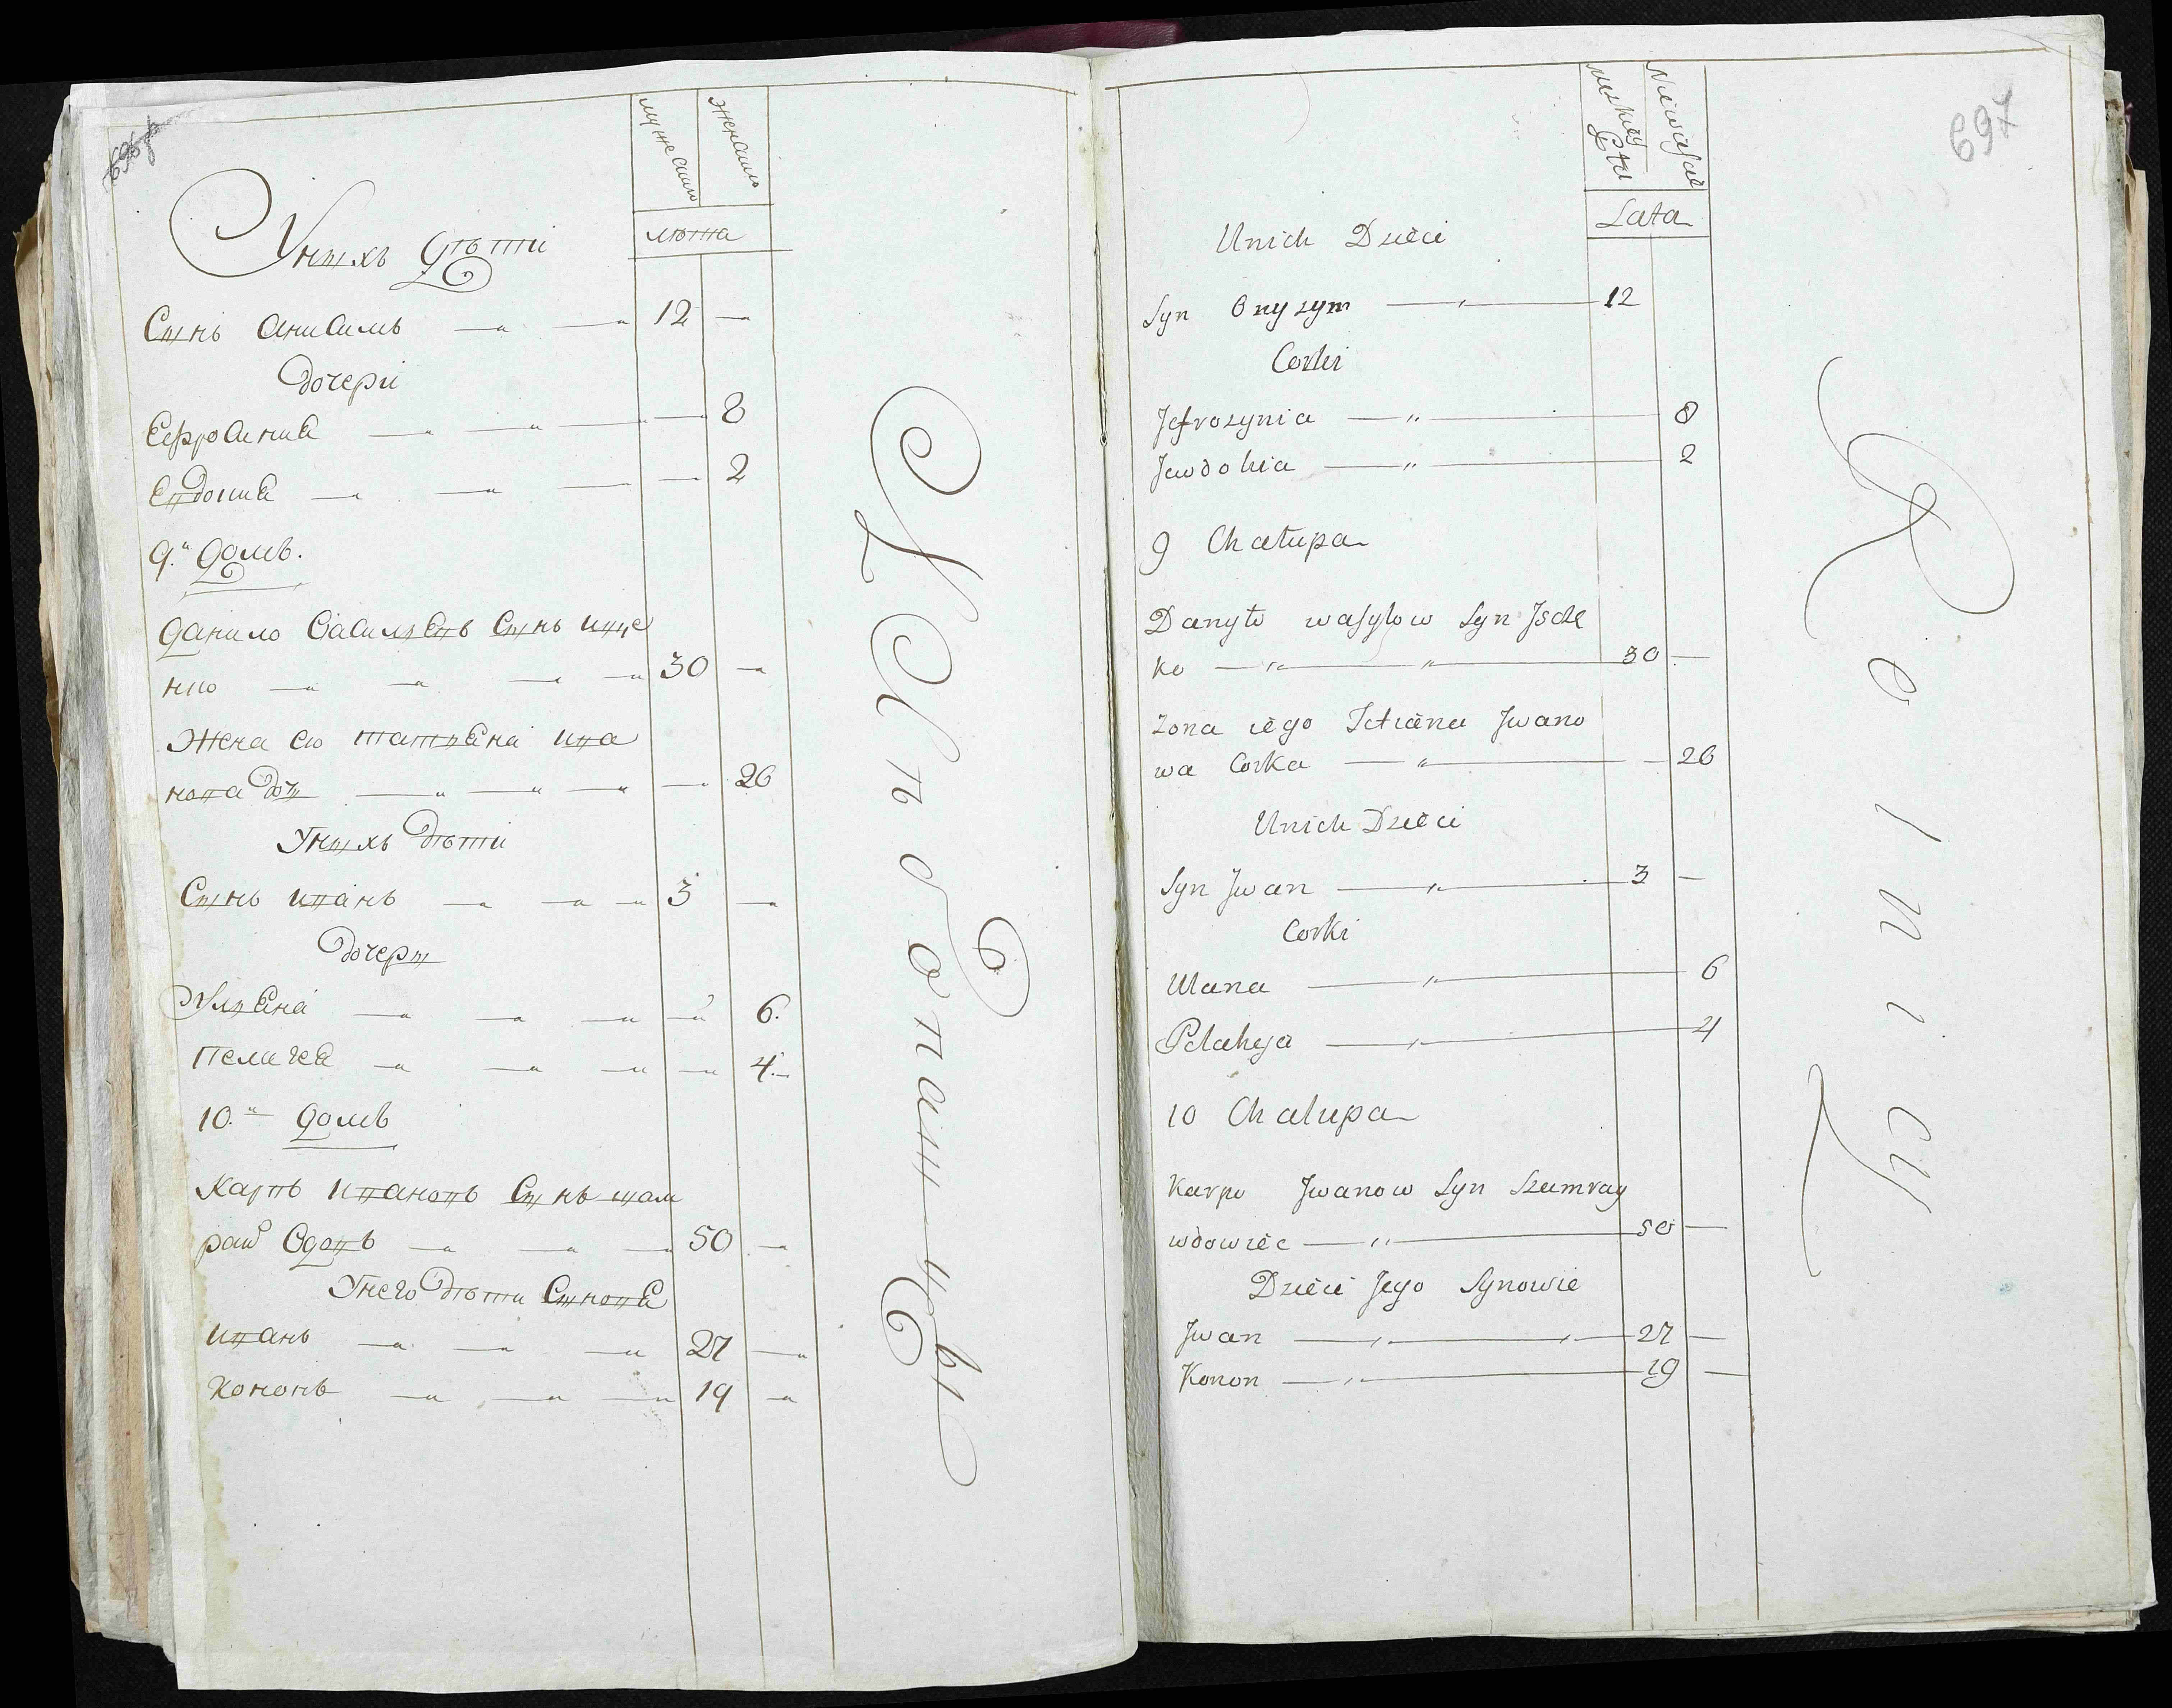 мужеска
женска
лѣта
У нихъ дѣти
Сынъ Анисимъ 12 —
Дочери
Ефросиния — 8
Евдокия — 2
9.й Домъ.
Данило Васильевъ Сынъ Ище
нко 30 —
Жена его татьяна Ива
нова дочь — 26
У нихъ дѣти
Сынъ иванъ 3 —
Дочеры
Ульяна — 6.
Пелагея — 4.
10.й Домъ
Карпъ Ивановъ Сынъ шам
рай Вдовъ 50 —
У него дѣти Сыновья
иванъ 27 —
Кононъ 19 —
Хлѣбопашцы
697
męskiey
Płci
Niewiascie
Lata
Unich Dzieci
Syn Onyzym 12
Corki
Jefrozynia 8
Jewdokia 2
9 Chałupa
Danyło wasylow Syn Jscze
ko 30 —
Zona iego Tetiana Jwano
wa Corka — 26
Unich Dzieci
Syn Jwan 3 —
Corki
Ulana 6
Pelaheja 4
10 Chałupa
Karpo Jwanow Syn Szamray
wdowiec 50 —
Dzieci Jego Synowie
Jwan 27 —
Konon 19 —
Rolnicy